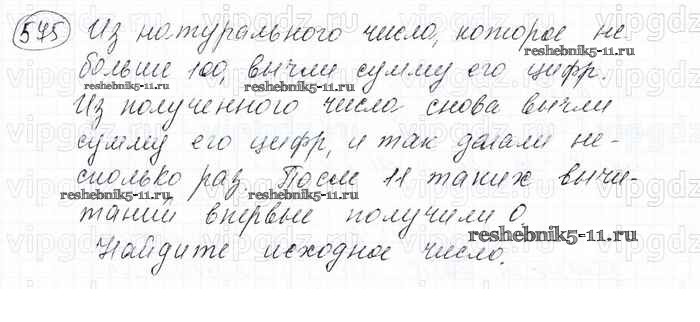 575 Из натурального числа, которое не
reshebnik5-11.ru
больше 100, вычли сумму его цифр.
reshebnik5-11.ru
Из полученного числа снова вычли
сумму его цифр, и так делали не-
сколько раз. После 11 таких вычи-
reshebnik5-11.ru
таний впервые получили 0.
reshebnik5-11.ru
Найдите исходное число.